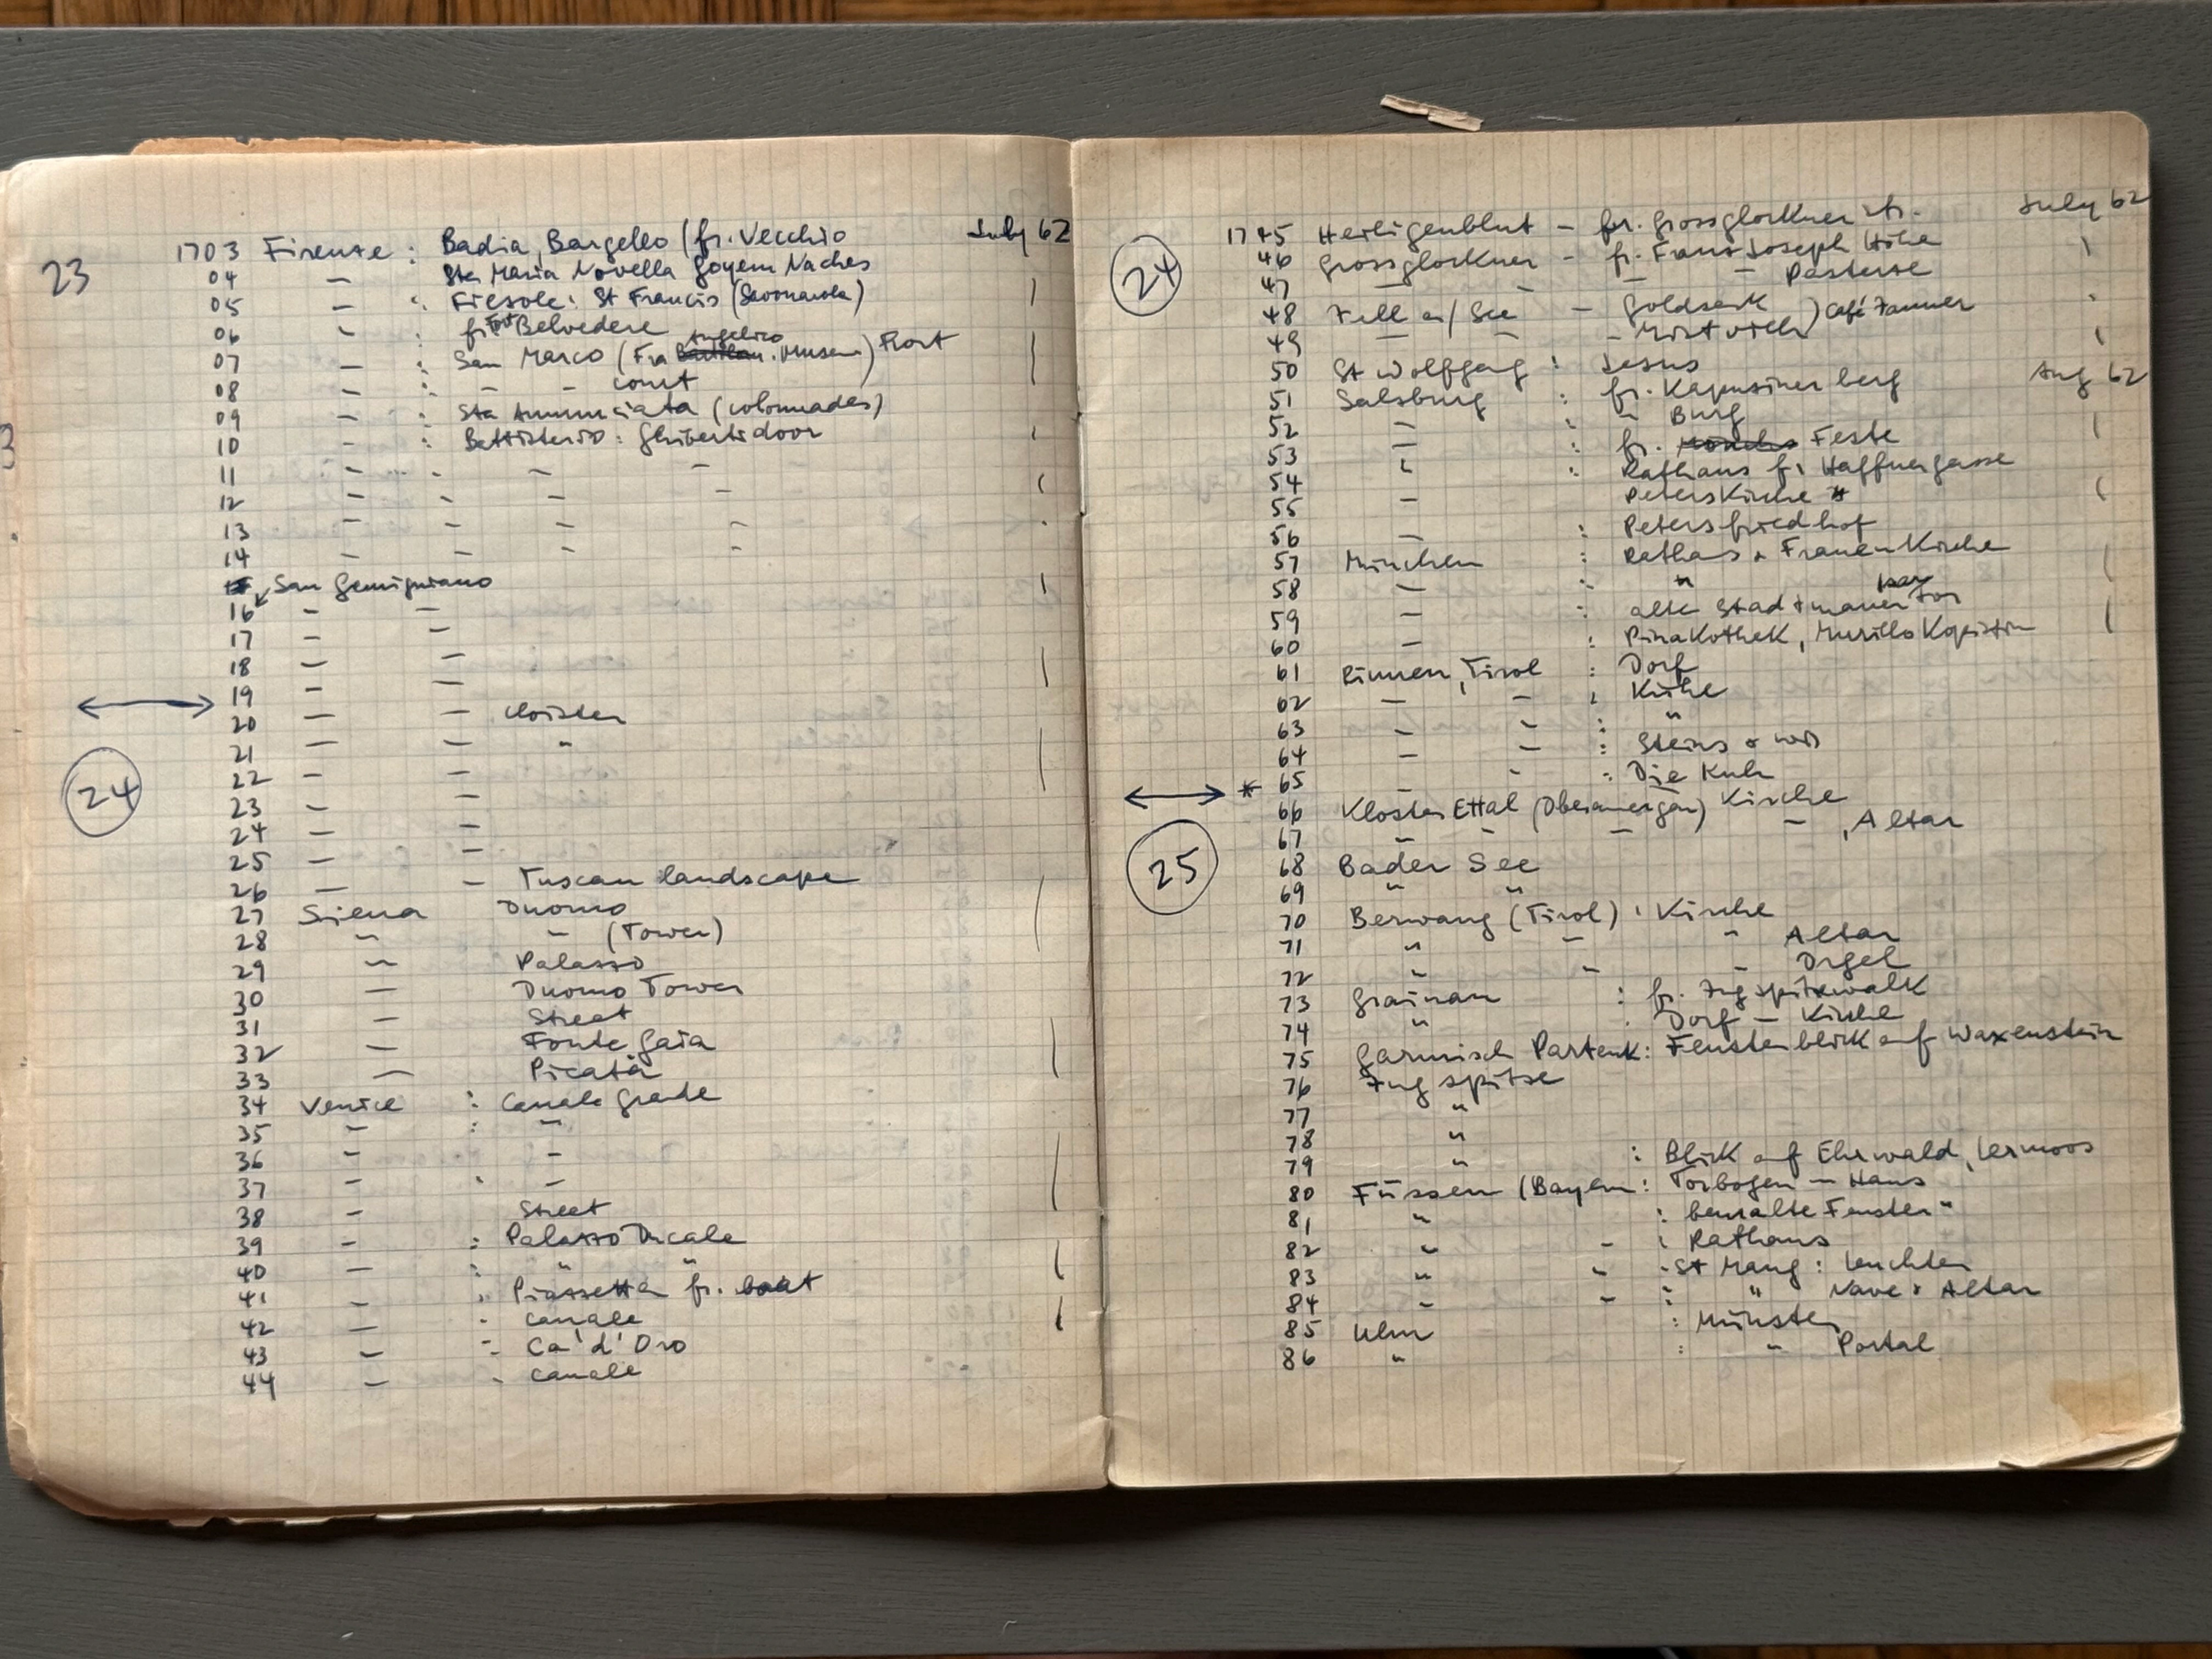 23
1703 Firenze : Badia, Bargello (fr. Vecchio July 62
04 – Sta Maria Novella Goyem Naches
05 – : Fiesole: St Francis (Savonarola)
06 – : fr Fort Belvedere
07 – : San Marco (Fra Angelico Museum)
08 – : – – court
09 – : Sta Annunciata (colonnades)
10 – : Battisterio : Ghiberti door
11 – – – –
12 – – – –
13 – – – –
14 – – – –
San Gemigniano
16 – –
17 – –
18 – –
19 – –
20 – – cloister
24
21 – – "
22 – –
23 – –
24 – –
25 – –
26 – – Tuscan landscape
27 Siena Duomo
28 " – (Tower)
29 " Palazzo
30 – Duomo Tower
31 – Street
32 – Fonte Gaia
33 –
34 Venice : Canale Grande
35 – : –
36 – –
37 – –
38 – Street
39 – : Palazzo Ducale
40 – : " "
41 – : Piazzetta fr. boat
42 – - Canale
43 – - Ca' d'Oro
44 – - Canale
24
1745 Heiligenblut – fr. Grossglockner str. July 62
46 Grossglockner – fr. Franz Joseph Höhe
47 – – – – Pasterze
48 Zell a/See –
49 – –
50 St Wolfgang : Jesus
51 Salzburg : fr. Kapuziner berg Aug 62
52 – : " Burg
53 – : fr. Feste
54 " : Rathaus fr Haffnergasse
55 – Peterskirche
56 – : Petersfriedhof
57 München : Rathaus & Frauenkirche
58 – : "
59 – : alte Stadtmauer Isar Tor
60 – : Pinakothek, Murillo Kopistin
61 Rinnen, Tirol : Dorf
62 – – : Kühe
63 – – : "
64 – – : &
* 65 – – : Die Kuh
66 Kloster Ettal (Oberamergau) Kirche
25
67 – – – – , Altar
68 Bader See
69 " "
70 Berwang (Tirol) : Kirche
71 " – " Altar
72 " – – Orgel
73 Grainau : fr. Zugspitzwalk
74 " : Dorf – Kirche
75 Garmisch Partenk : Fensterblick auf Waxenstein
76 Zugspitze
77 "
78 "
79 " : Blick auf Ehrwald, Lermoos
80 Füssen (Bayern : Torbogen – Haus
81 " : bemalte Fenster "
82 " – : Rathaus
83 " " - St Mang : Leuchter
84 – – : " Nave & Altar
85 Ulm : Münster
86 " : " Portal